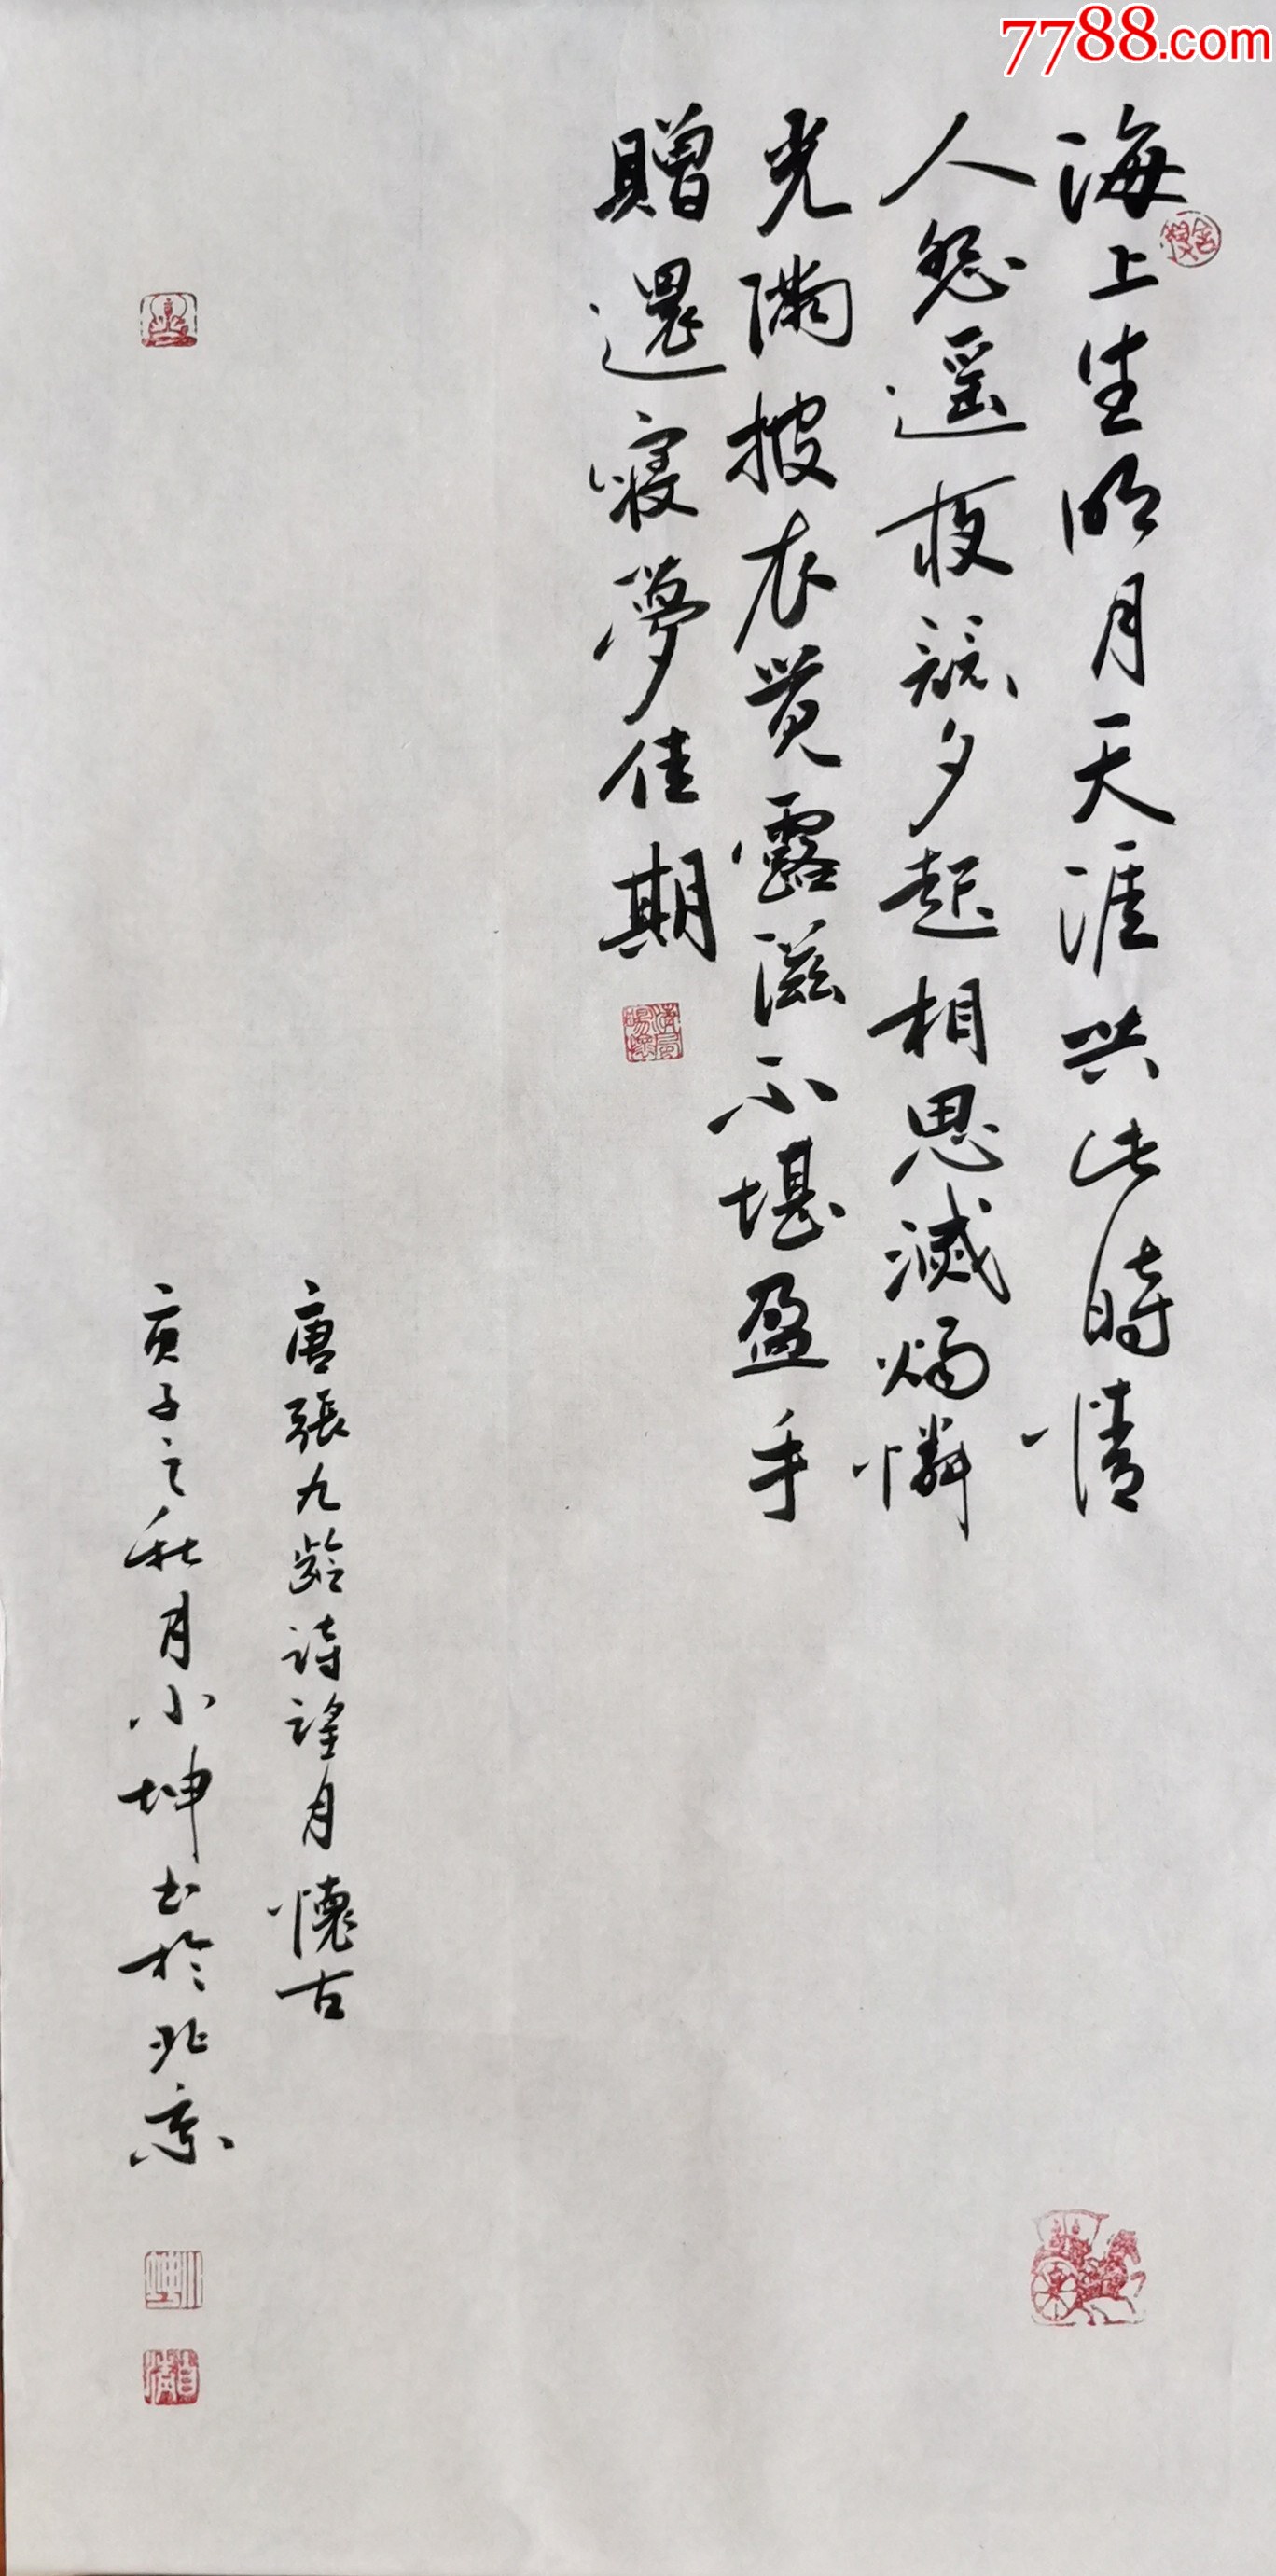 7788.com
海上生明月天涯共此時情
人怨遥夜競夕起相思滅燭憐
光滿披衣觉露滋不堪盈手
贈還寢夢佳期
唐張九齡詩望月懷古
庚子之秋月小坤书於北京
小坤